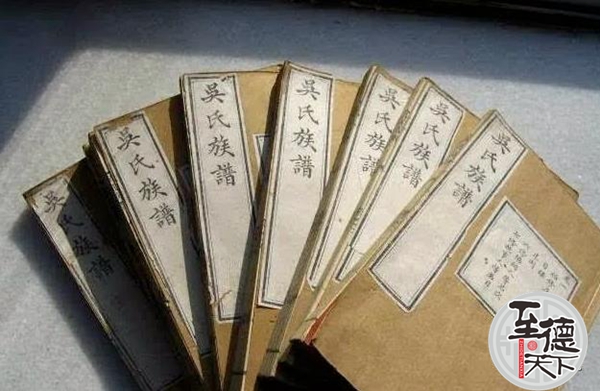 吳氏族譜
吳氏族譜
吳氏族譜
吳氏族譜
吳氏族譜
吳氏族譜
吳氏族譜
至德
天下